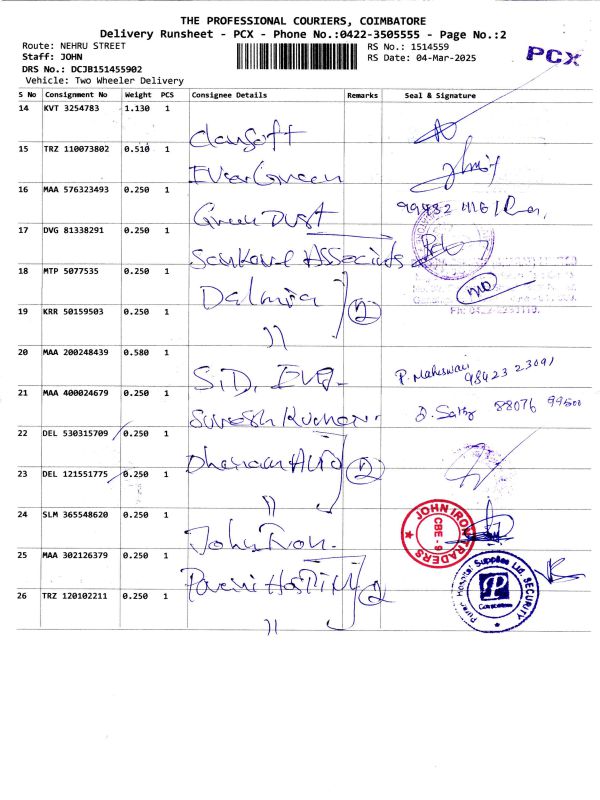 THE PROFESSIONAL COURIERS, COIMBATORE
Delivery Runsheet - PCX - Phone No.:0422-3505555 - Page No.:2
Route: NEHRU STREET RS No.: 1514559
Staff: JOHN RS Date: 04-Mar-2025
PCX
DRS No.: DCJB151455902
Vehicle: Two Wheeler Delivery
S No Consignment No Weight PCS Consignee Details Remarks Seal & Signature
14 KVT 3254783 1.130 1
15 TRZ 110073802 0.510 1 EverGreen
16 MAA 576323493 0.250 1 Green Dust
17 DVG 81338291 0.250 1 Associats
18 MTP 5077535 0.250 1 Dalmia 2
19 KRR 50159503 0.250 1 〃
20 MAA 200248439 0.580 1 S.D. P. Maheswari 98423 23091
21 MAA 400024679 0.250 1 Suresh Kumar. 88076 99500
22 DEL 530315709 0.250 1 2
23 DEL 121551775 0.250 1 〃
24 SLM 365548620 0.250 1 John Iron. JOHN IRON TRADERS CBE - 9
25 MAA 302126379 0.250 1 2 Hospital Supplies Ltd. SECURITY P Coimbatore
26 TRZ 120102211 0.250 1 〃